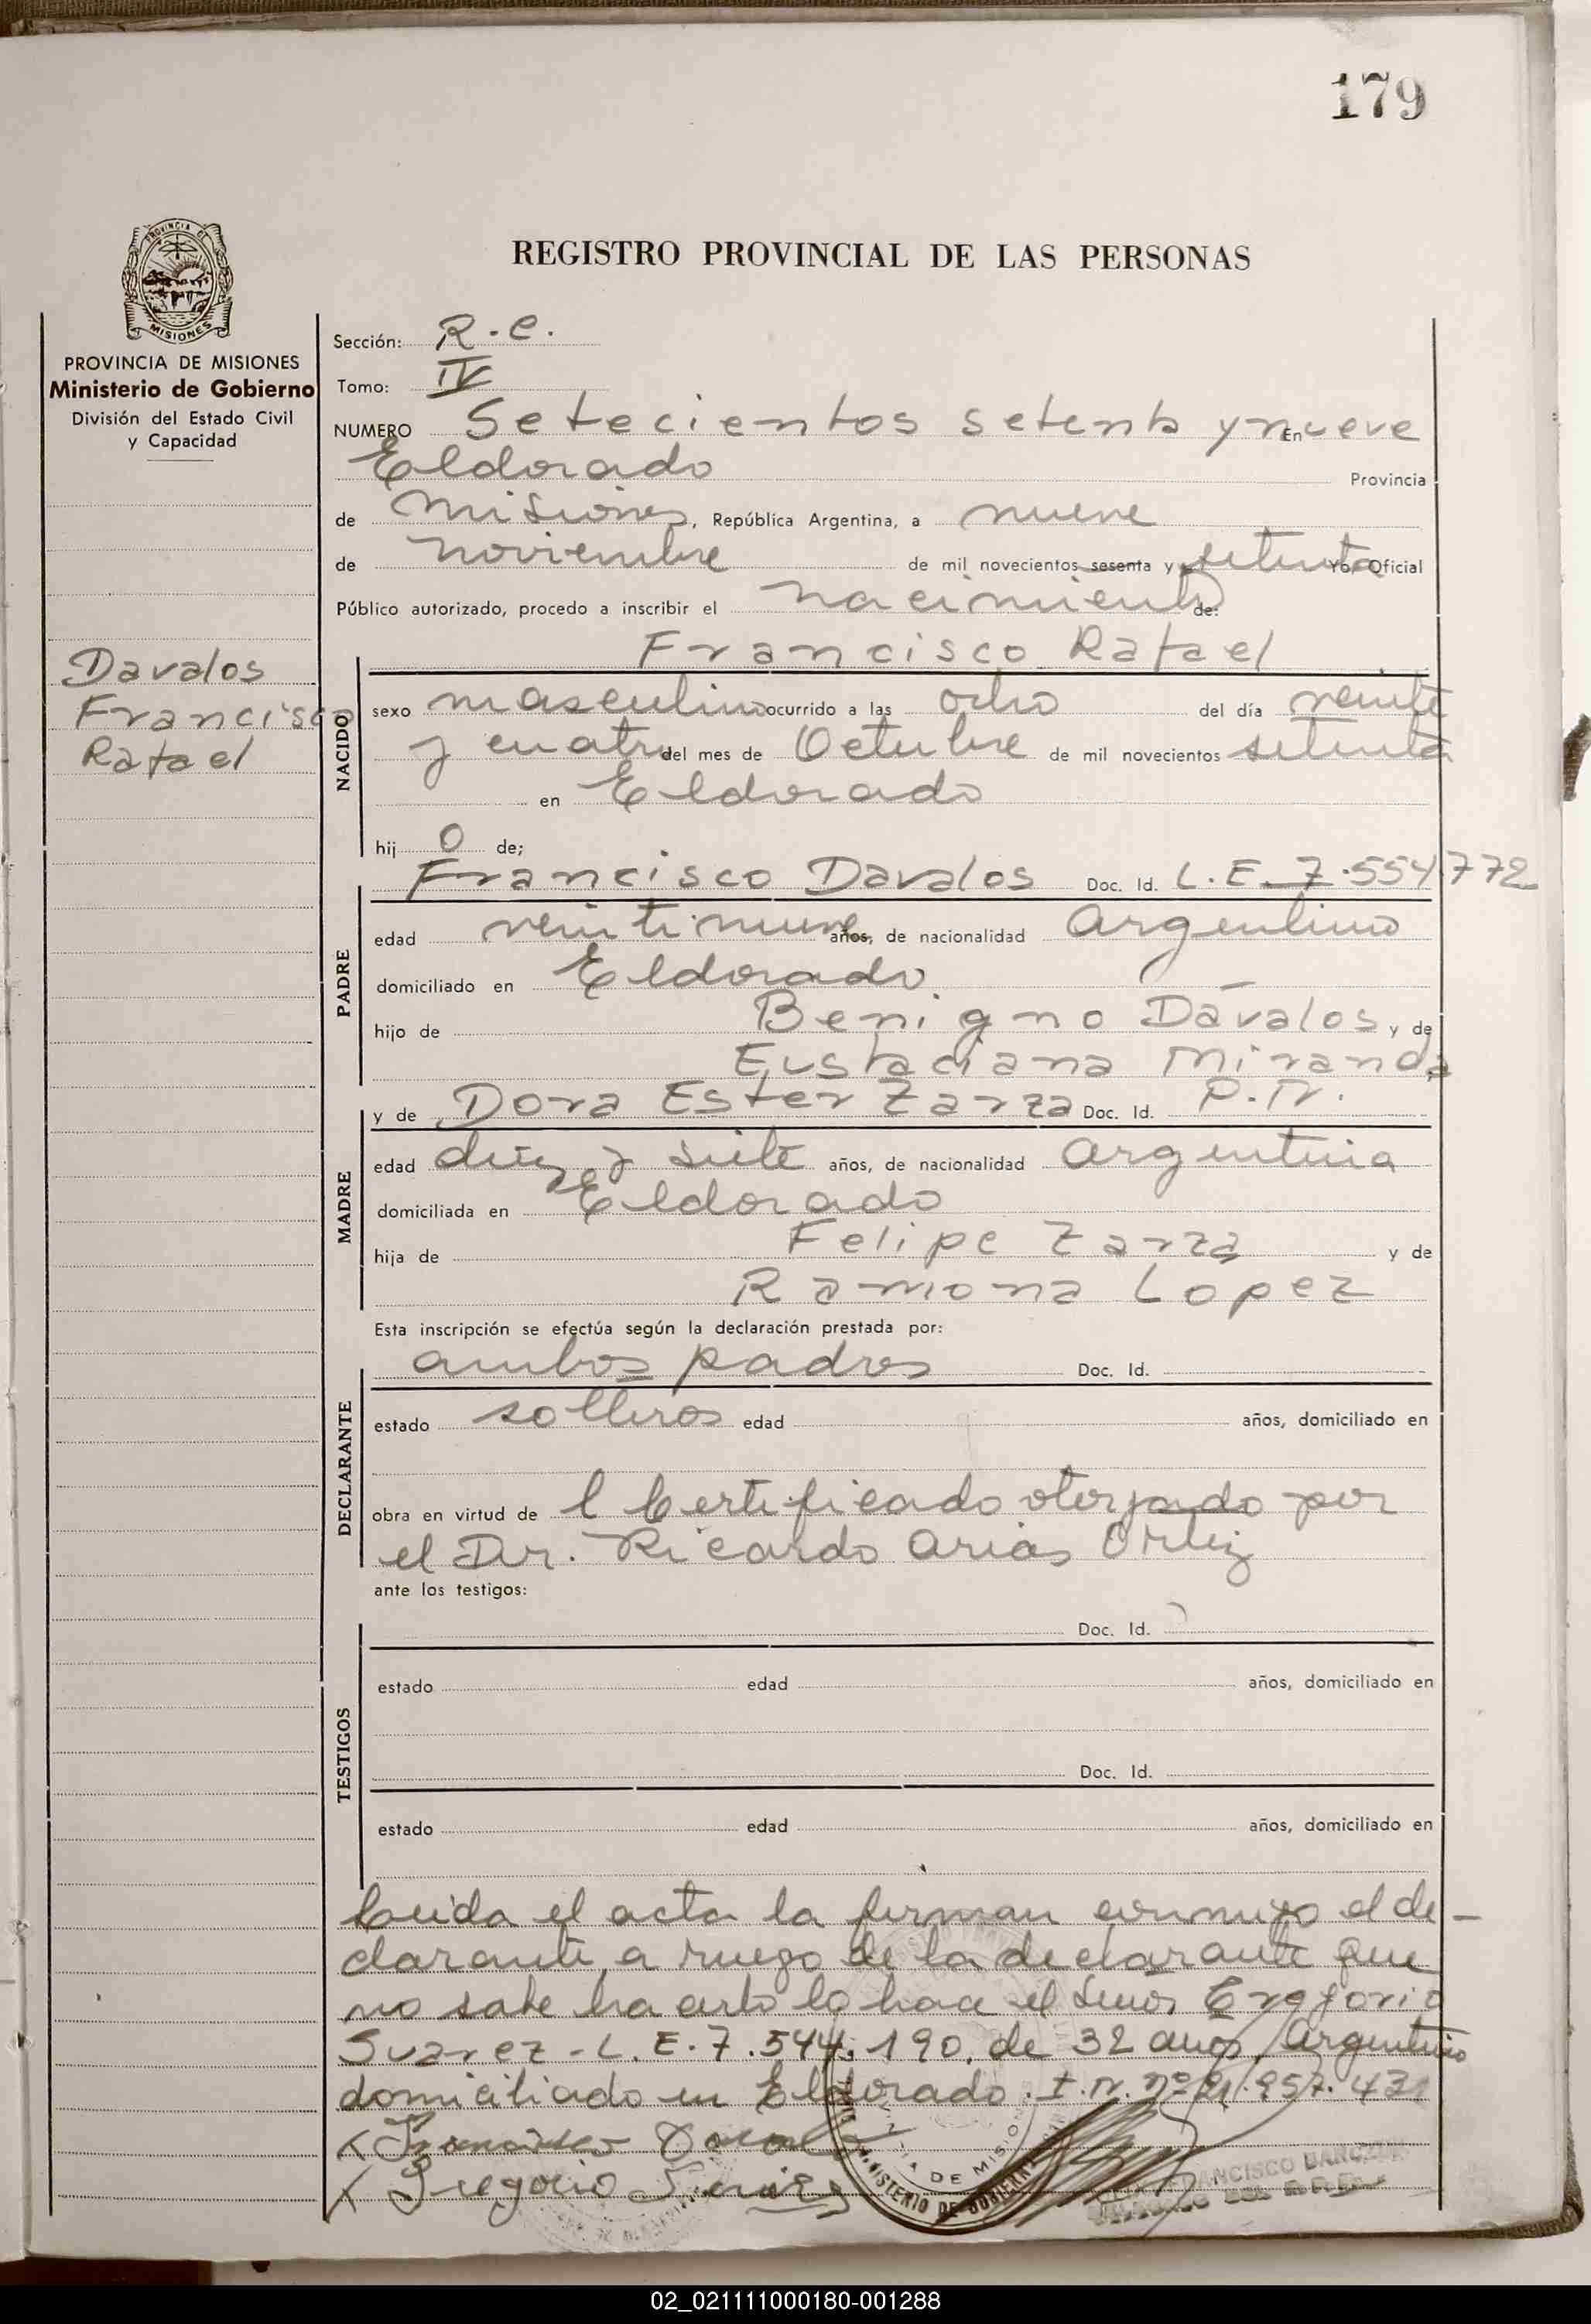 179
REGISTRO PROVINCIAL DE LAS PERSONAS
PROVINCIA DE MISIONES
Ministerio de Gobierno
División del Estado Civil
y Capacidad
Davalos
Francisco
Rafael
Sección: R.C.
Tomo: IV
NUMERO Setecientos setenta y nueve En
Eldorado Provincia
de Misiones, República Argentina, a nueve
de noviembre de mil novecientos sesenta y setenta Yo, Oficial
Público autorizado, procedo a inscribir el nacimiento de:
Francisco Rafael
NACIDO
sexo masculino ocurrido a las ocho del día veinte
y cuatro del mes de Octubre de mil novecientos setenta
en Eldorado
hij o de;
PADRE
Francisco Davalos Doc. Id. L.E. 7.554.772
edad veintinueve años, de nacionalidad Argentino
domiciliado en Eldorado
hijo de Benigno Dávalos, y de
Eustaciana Miranda
MADRE
y de Dora Ester Zarza Doc. Id.
edad diez y siete años, de nacionalidad Argentina
domiciliada en Eldorado
hija de Felipe Zarza y de
Ramona Lopez
Esta inscripción se efectúa según la declaración prestada por:
DECLARANTE
ambos padres Doc. Id.
estado solteros edad años, domiciliado en
obra en virtud de l Certificado otorgado por
el Dr. Ricardo Arias Ortiz
ante los testigos:
TESTIGOS
Doc. Id.
estado edad años, domiciliado en
Doc. Id.
estado edad años, domiciliado en
Leida el acta la firman conmigo el de-
clarante, a ruego de la declarante que
no sabe hacerlo lo hace el señor Gregorio
Suarez - L.E. 7.544.190. de 32 años, Argentino
domiciliado en Eldorado. I.N. nº 21.957.431
x Francisco Davalos
x Gregorio Suarez
PROVINCIA DE MISIONES
MINISTERIO DE GOBIERNO
02_021111000180-001288